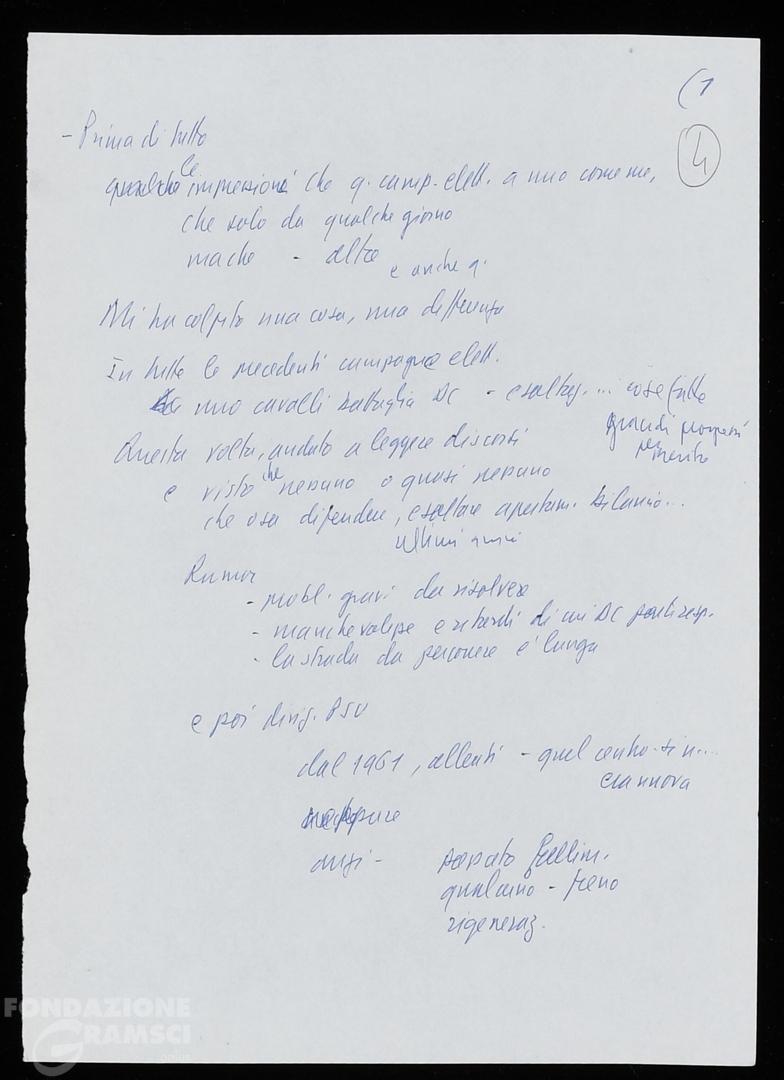 (1
4
- Prima di tutto
le
qualche impressioni che q. camp. elett. a uno come me,
che solo da qualche giorno
ma che - altre
e anche q.
Mi ha colpito una cosa, una differenza
In tutte le precedenti campagne elett.
uno cavalli battaglia DC - esaltaz. ... cose fatte
grandi progressi
per merito
Questa volta, andato a leggere discorsi
e visto che nessuno o quasi nessuno
che osa difendere, esaltare apertam. bilancio...
ultimi anni
Rumor
- probl. gravi da risolvere
- manchevolezze e ritardi di cui DC porti resp.
- la strada da percorrere è lunga
e poi dirig. PSU
dal 1961, attenti - quel centro-sin...
era nuova
neppure
anzi -
qualcuno - freno
rigeneraz.
FONDAZIONE
GRAMSCI
onlus